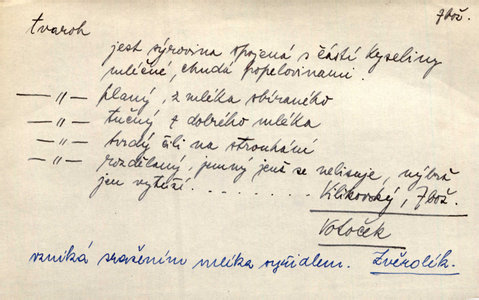 Zbož.
tvaroh
jest sýrovina spojená s částí kyseliny
mléčné, chudá popelovinami.
—"— planý, z mléka sbíraného
—"— tučný z dobrého mléka
—"— tvrdý čili na strouhání
—"— rozdělaný, jemný jenž se nelisuje, nýbrž
jen vytěží ........ Klikovský, Zbož.
Votoček
vzniká sražením mléka syřidlem. Zvěrolík.